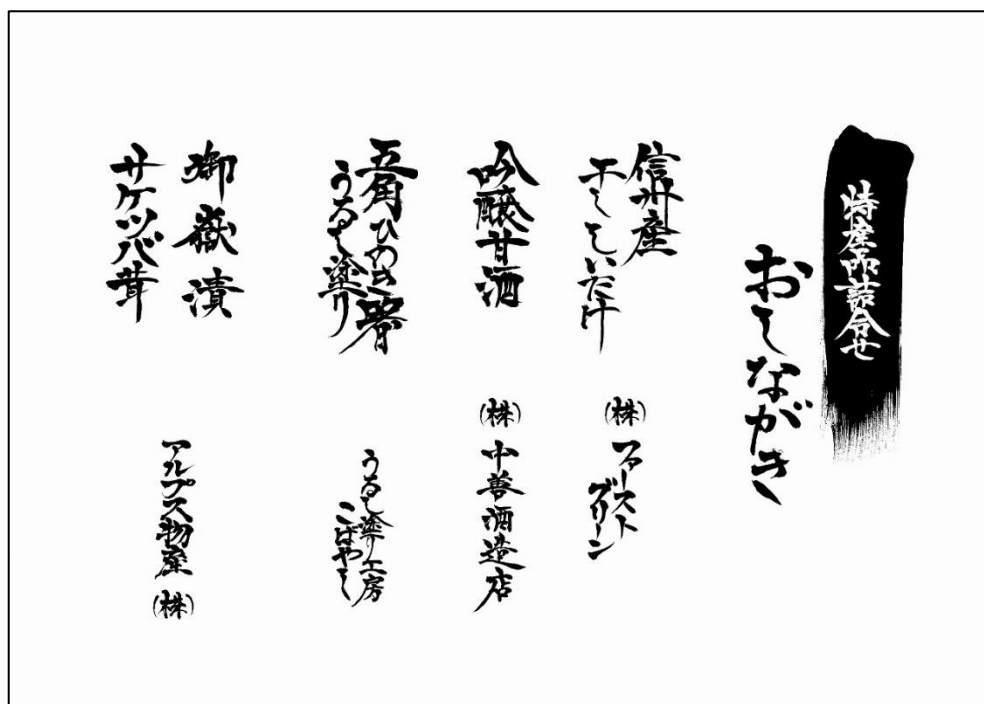 特産品詰合せ
おしながき
信州産
干ししいたけ
(株)ファースト
グリーン
吟醸甘酒
(株)中善酒造店
五角ひのき箸
うるし塗り
うるし塗り工房
こばやし
御嶽漬
サケツバ茸
アルプス物産(株)